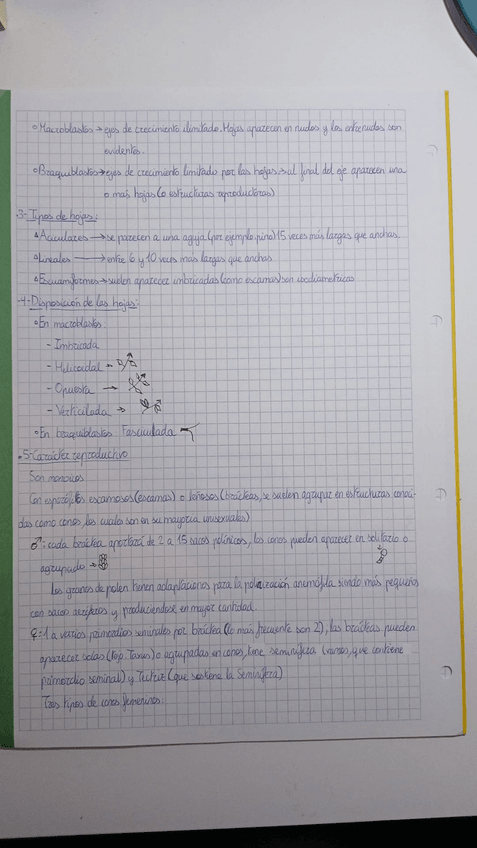 ° Macroblastos → ejes de crecimiento ilimitado. Hojas aparecen en nudos y los entrenudos son
evidentes.
° Braquiblastos → ejes de crecimiento limitado por las hojas: al final del eje aparecen una
o más hojas (o estructuras reproductoras)
3- Tipos de hojas:
° Aciculares → se parecen a una aguja (por ejemplo, pino) 15 veces más largas que anchas.
° Lineales → entre 6 y 10 veces más largas que anchas
° Escuamiformes → suelen aparecer imbricadas (como escamas) son isodiametricas
-4- Disposición de las hojas:
° En macroblastos:
- Imbricada
- Helicoidal →
- Opuesta →
- Verticilada →
° En braquiblastos Fasciculada
5- Carácter reproductivo
Son monoicos
Con esporófilos escamosos (escamas) o leñosos (brácteas, se suelen agrupar en estructuras conoci-
das como conos, los cuales son en su mayoría unisexuales)
♂: cada bráctea aportará de 2 a 15 sacos polínicos, los conos pueden aparecer en solitario o
agrupado →
Los granos de polen tienen adaptaciones para la polinización anemófila siendo más pequeños
con sacos aeríferos y produciendose en mayor cantidad.
♀: 1 a varios primordios seminales por bráctea (lo más frecuente son 2), las brácteas pueden
aparecer solas (Taxus) o agrupadas en conos, tiene seminífera que contiene
primordio seminal) y Tectriz (que sostiene la Seminífera)
Tres tipos de conos femeninos: